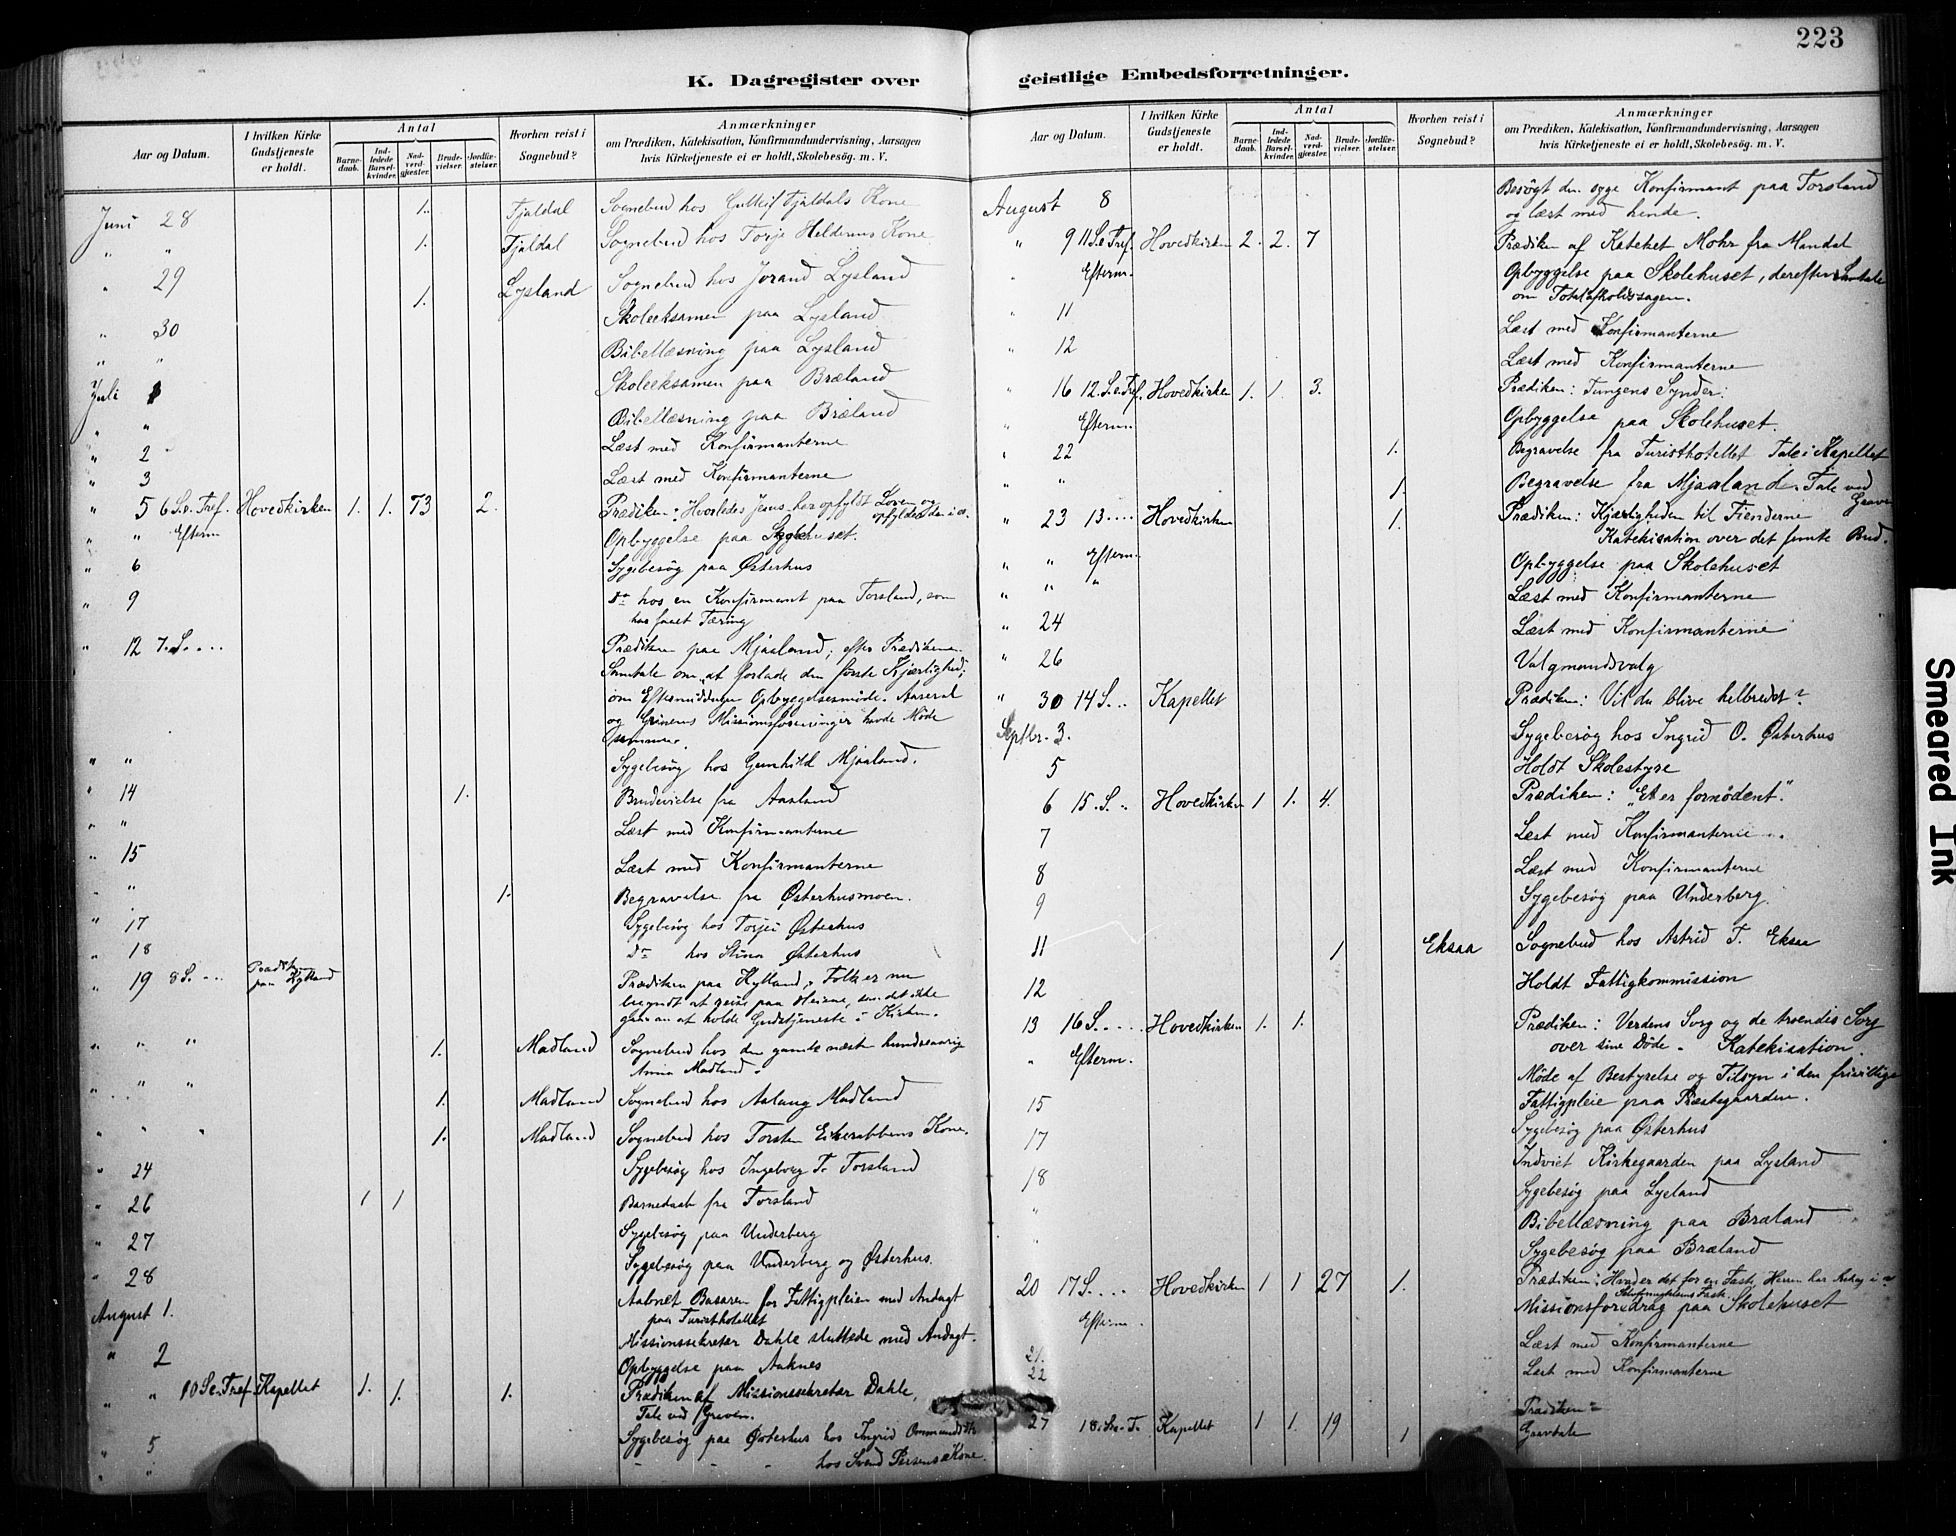 223
K. Dagregister over
geistlige Embedsforretninger.
Aar og Datum.
I hvilken Kirke Gudstjeneste er holdt.
Antal
Barne-daab.
Ind-ledede Barsel-kvinder.
Nad-verd-gjæster.
Brude-vielser.
Jordfæ-stelser.
Hvorhen reist i Sognebud?
Anmærkninger
om Prædiken, Katekisation, Konfirmandundervisning, Aarsagen
hvis Kirketjeneste ei er holdt, Skolebesøg. m. V.
Juni 28 1. Fjaldal Sognebud hos Fjaldals Kone
" " 1. Fjaldal Sognebud hos Torje Helderens Kone
" 29 1. Lysland Sognebud hos Jorand Lysland
Skoleeksamen paa Lysland
" 30 Bibellæsning paa Lysland
Juli 1 Skoleeksamen paa Bræland
" " Bibellæsning paa Bræland
" 2 Læst med Konfirmanterne
" 3 Læst med Konfirmanterne
" 5 6 S.e.Tref. Hovedkirken 1. 1. 73 2. Prædiken: Hvorledes Jesus har opfyldt Loven og
opfylder den i os.
" " Efterm Opbyggelse paa
" 6 Sygebesøg paa Østerhus
" 9 Do hos en Konfirmant paa Torsland, som
har faaet Tæring
" 12 7. S.... Prædiken paa Mjaaland; efter Prædikenen
Samtale om "at forlade den første Kjærlighed;"
om Eftermiddagen Opbyggelsesmøde. Aaseral
og Grinens Missionsforeninger havde Møde
sammen.
" " Sygebesøg hos Gunhild Mjaaland.
" 14 1. Brudevielse fra Aasland
" " Læst med Konfirmanterne
" 15 Læst med Konfirmanterne
" " 1. Begravelse fra Østerhusmoen.
" 17 Sygebesøg hos Torjei Østerhus
" 18 Do hos Stina Østerhus
" 19 8 S.... Prædik. paa Kylland Prædiken paa Kylland, Folk er nu
begyndt at reise paa Heiene, saa det ikke
gaar an at holde Gudstjeneste i Kirken.
" " " 1. Madland Sognebud hos den gamle næsten hundreaarige
Anna Madland.
" " " 1. Madland Sognebud hos Aslaug Madland
" " " 1. Madland Sognebud hos Torsten Kone.
" 24 Sygebesøg hos Ingeborg T. Torsland
" 26 1 1 Barnedaab fra Torsland
" 27 Sygebesøg paa Underberg
" 28 Sygebesøg paa Underberg og Østerhus.
August 1. Aabnet Basaren for Fattigpleien med Andagt
paa Turisthotellet
Missionssekretær Dahle sluttede med Andagt.
" 2 Opbyggelse paa Aaknes
" 10 S.e. Tref. Kapellet 1. 1. 1. Prædiken af Missionssekretær Dahle,
Tale ved Graven.
" 5 Sygebesøg paa Østerhus hos Ingrid
" - - - hos Svend Persens Kone.
Aar og Datum.
I hvilken Kirke Gudstjeneste er holdt.
Antal
Barne-daab.
Ind-ledede Barsel-kvinder.
Nad-verd-gjæster.
Brude-vielser.
Jordfæ-stelser.
Hvorhen reist i Sognebud?
Anmærkninger
om Prædiken, Katekisation, Konfirmandundervisning, Aarsagen
hvis Kirketjeneste ei er holdt, Skolebesøg. m. V.
August 8 Besøgt den syge Konfirmant paa Torsland
og læst med hende.
" 9 11 S.e.Tref. Hovedkirken 2. 2. 7 Prædiken af Kateket Mohr fra Mandal
" Efterm. Opbyggelse paa Skolehuset, derefter Samtale
om Totalafholdssagen.
" 11 Læst med Konfirmanterne
" 12 Læst med Konfirmanterne
" 16 12. S.e.Tref. Hovedkirken 1. 1. 3. Prædiken: Tungens Synder.
" Efterm. Opbyggelse paa Skolehuset.
" 22 1. Begravelse fra Turisthotellet Tale i Kapellet
" " 1. Begravelse fra Mjaaland. Tale ved
Graven
" 23 13.... Hovedkirken 1. Prædiken: Kjærligheden til Fienderne
Katekisation over det femte Bud.
" " Efterm. Opbyggelse paa Skolehuset
" " " Læst med Konfirmanterne
" 24 Læst med Konfirmanterne
" 26 Valgmandsvalg
" 30 14 S... Kapellet Prædiken: Vil du blive helbredet?
Septbr. 3. Sygebesøg hos Ingrid O. Østerhus
5 Holdt Skolestyre
6 15. S.. Hovedkirken 1 1. 4. Prædiken: "Et er fornødent."
7 Læst med Konfirmanterne.
8 Læst med Konfirmanterne
9 Sygebesøg paa Underberg.
11 1 Eksaa Sognebud hos Astrid T. Eksaa
12 Holdt Fattigkommission
13 16 S..... Hovedkirken 1. 1. Prædiken: Verdens Sorg og de troendes Sorg
over sine Døde. Katekisation.
" Efterm. Møde af Bestyrelse og Tilsyn i den frivillige
Fattigpleie paa Præstegaarden.
15 Sygebesøg paa Østerhus
17 Indviet Kirkegaarden paa Lysland
18 Sygebesøg paa Lysland
" Bibellæsning paa Bræland
" Sygebesøg paa Bræland
20 17 S..... Hovedkirken 1 1 27 1. Prædiken: Hvad er det for en Faste Herren har Behag i
Efterm. Missionsforedrag paa Skolehuset
21. Læst med Konfirmanterne
22 Læst med Konfirmanterne
27 18. S.e.T. Kapellet 1 1. 19 1 Prædiken
Gravtale
Smeared Ink